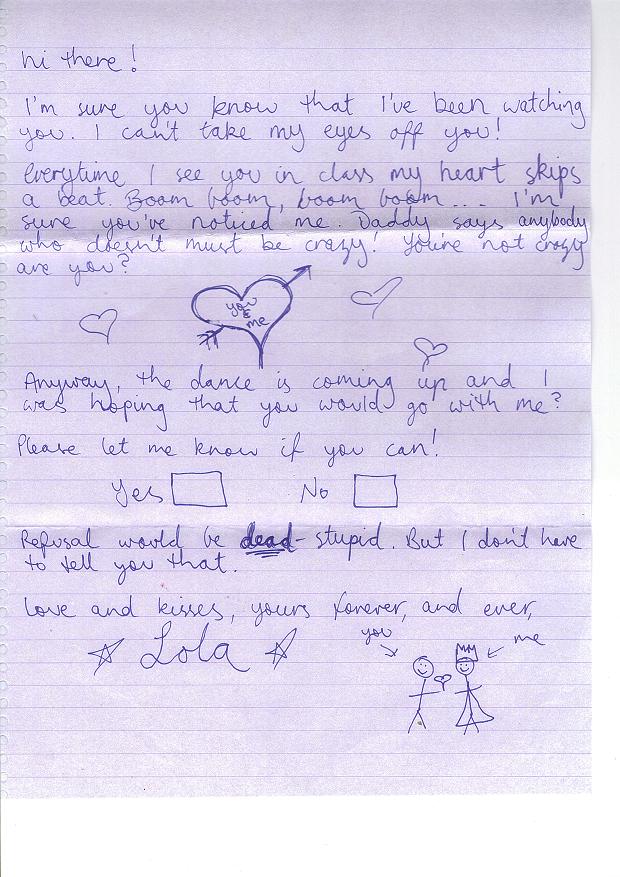 hi there!
I'm sure you know that I've been watching
you. I can't take my eyes off you!
Everytime I see you in class my heart skips
a beat. Boom boom, boom boom.... I'm
sure you've noticed me. Daddy says anybody
who doesn't must be crazy! You're not crazy
are you?
you
&
me
Anyway, the dance is coming up and I
was hoping that you would go with me?
Please let me know if you can!
Yes No
Refusal would be dead-stupid. But I don't have
to tell you that.
Love and kisses, yours forever, and ever,
Lola
you
me